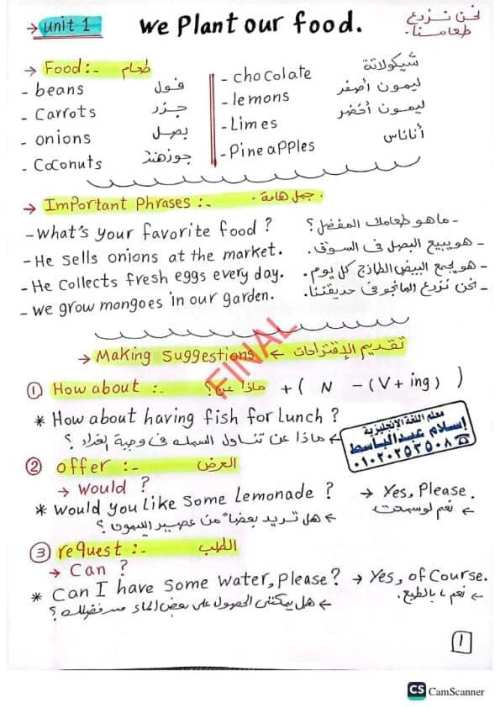 → unit 1 We Plant our food. نحن نزرع طعامنا.
→ Food:- طعام
- beans فول
- Carrots جزر
- onions بصل
- Coconuts جوزهند
- chocolate شيكولاتة
- lemons ليمون أصفر
- Limes ليمون أخضر
- Pineapples أناناس
→ Important Phrases :- جمل هامة.
- What's your favorite food ? - ماهو طعامك المفضل؟
- He sells onions at the market. - هو يبيع البصل فى السوق.
- He Collects fresh eggs every day. - هو يجمع البيض الطازج كل يوم.
- We grow mongoes in our garden. - نحن نزرع المانجو فى حديقتنا.
→ Making Suggestions ← تقديم الإقتراحات
FINAL
① How about :- ماذا عن؟ + ( N - (V + ing) )
* How about having fish for Lunch ?
← ماذا عن تناول السمك فى وجبة الغداء ؟
معلم اللغة الإنجليزية
إسلام عبدالباسط
٠١٠٢٠٢٥٣٥٠٨
② offer :- العرض
→ Would ?
* Would you Like Some Lemonade ? → Yes, Please.
← هل تريد بعضاً من عصير الليمون ؟ ← نعم لوسمحت
③ request :- الطلب
→ Can ?
* Can I have Some water, Please? → Yes, of Course.
← هل يمكننى الحصول على بعض الماء من فضلك ؟ ← نعم ، بالطبع.
1
CS CamScanner